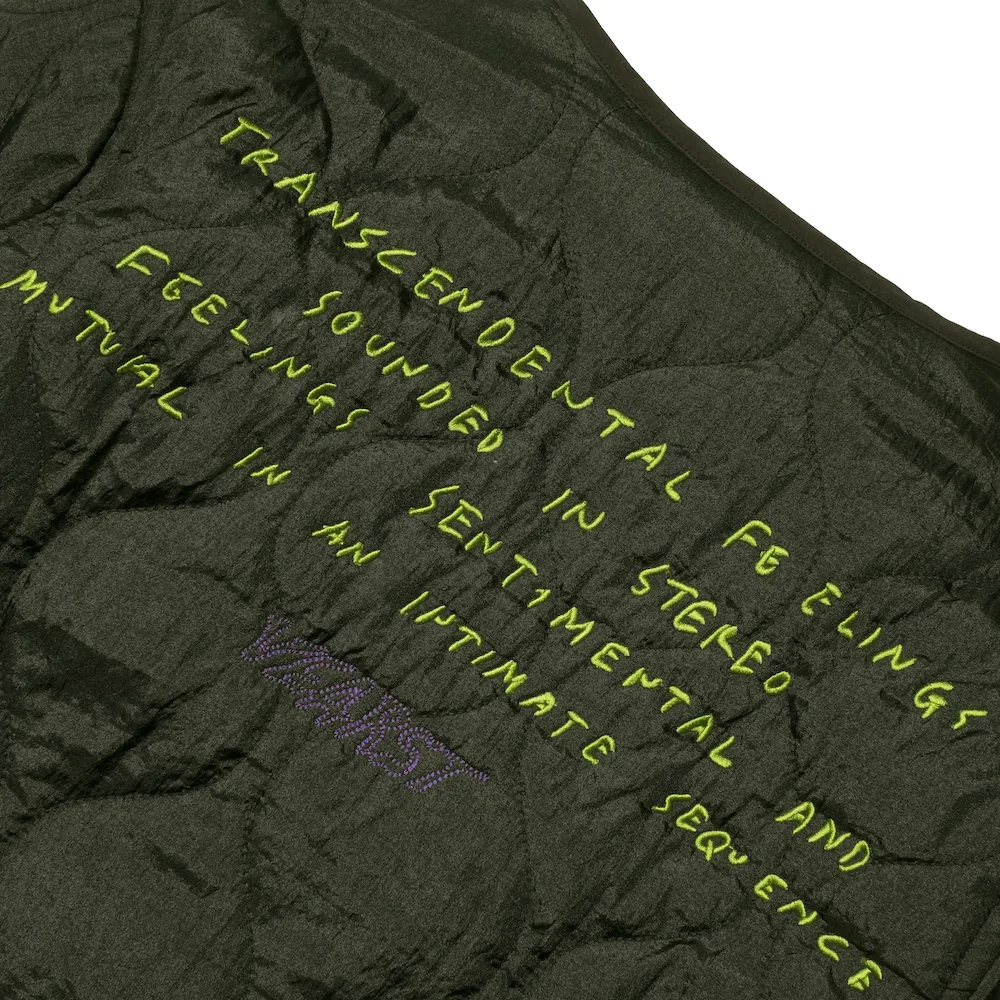 TRANSCENDENTAL FEELINGS
SOUNDED IN STEREO
FEELINGS SENTIMENTAL AND
MUTUAL IN AN INTIMATE SEQUENCE